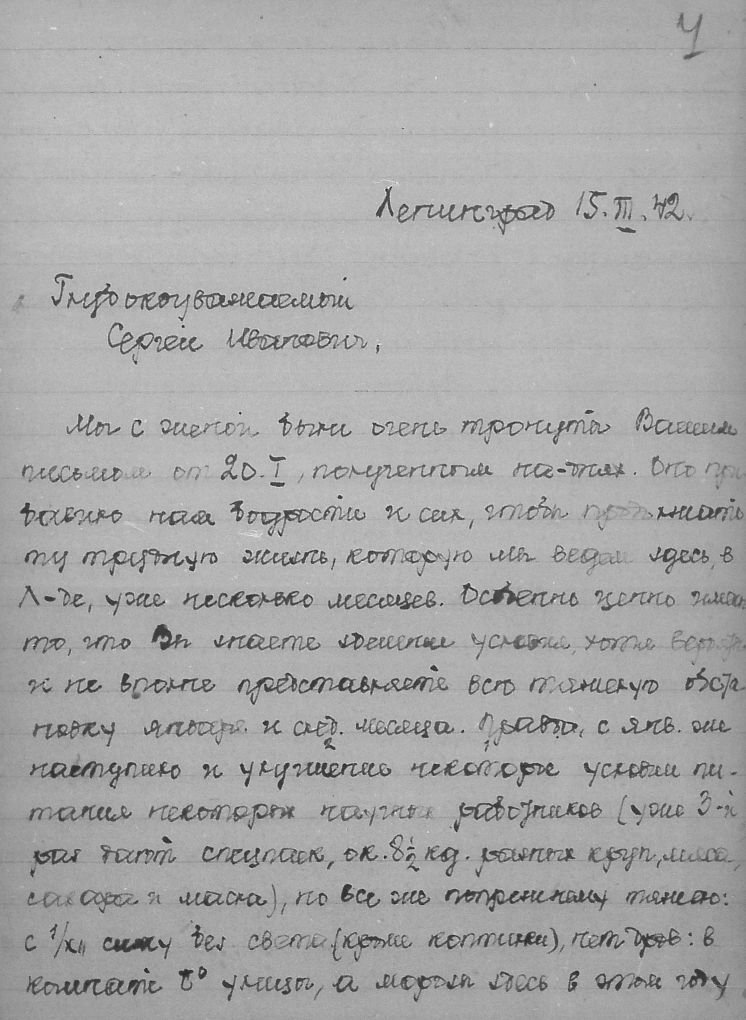 4
Ленинград 15.III.42.
Глубокоуважаемый
Сергей Иванович,
Мы с женой были очень тронуты Вашим
письмом от 20.I, полученным на-днях. Оно при-
бавило нам бодрости и сил, чтобы продолжать
ту трудную жизнь, которую мы ведем здесь, в
Л-де, уже несколько месяцев. Особенно ценно нам
то, что Вы знаете здешние условия, хотя вероятно
и не вполне представляете всю тяжелую обста-
новку января и след. месяца. Правда, с янв. же
наступило и улучшение некоторых условий пи-
тания некоторых научных работников (уже 3-й
раз дают спецпаек, ок. 8½ кг. разных круп, мяса,
сахара и масла), но все же попрежнему тяжело:
с 1/XII сижу без света (кроме коптилки), нет дров: в
комнате t° улицы, а морозы здесь в этом году